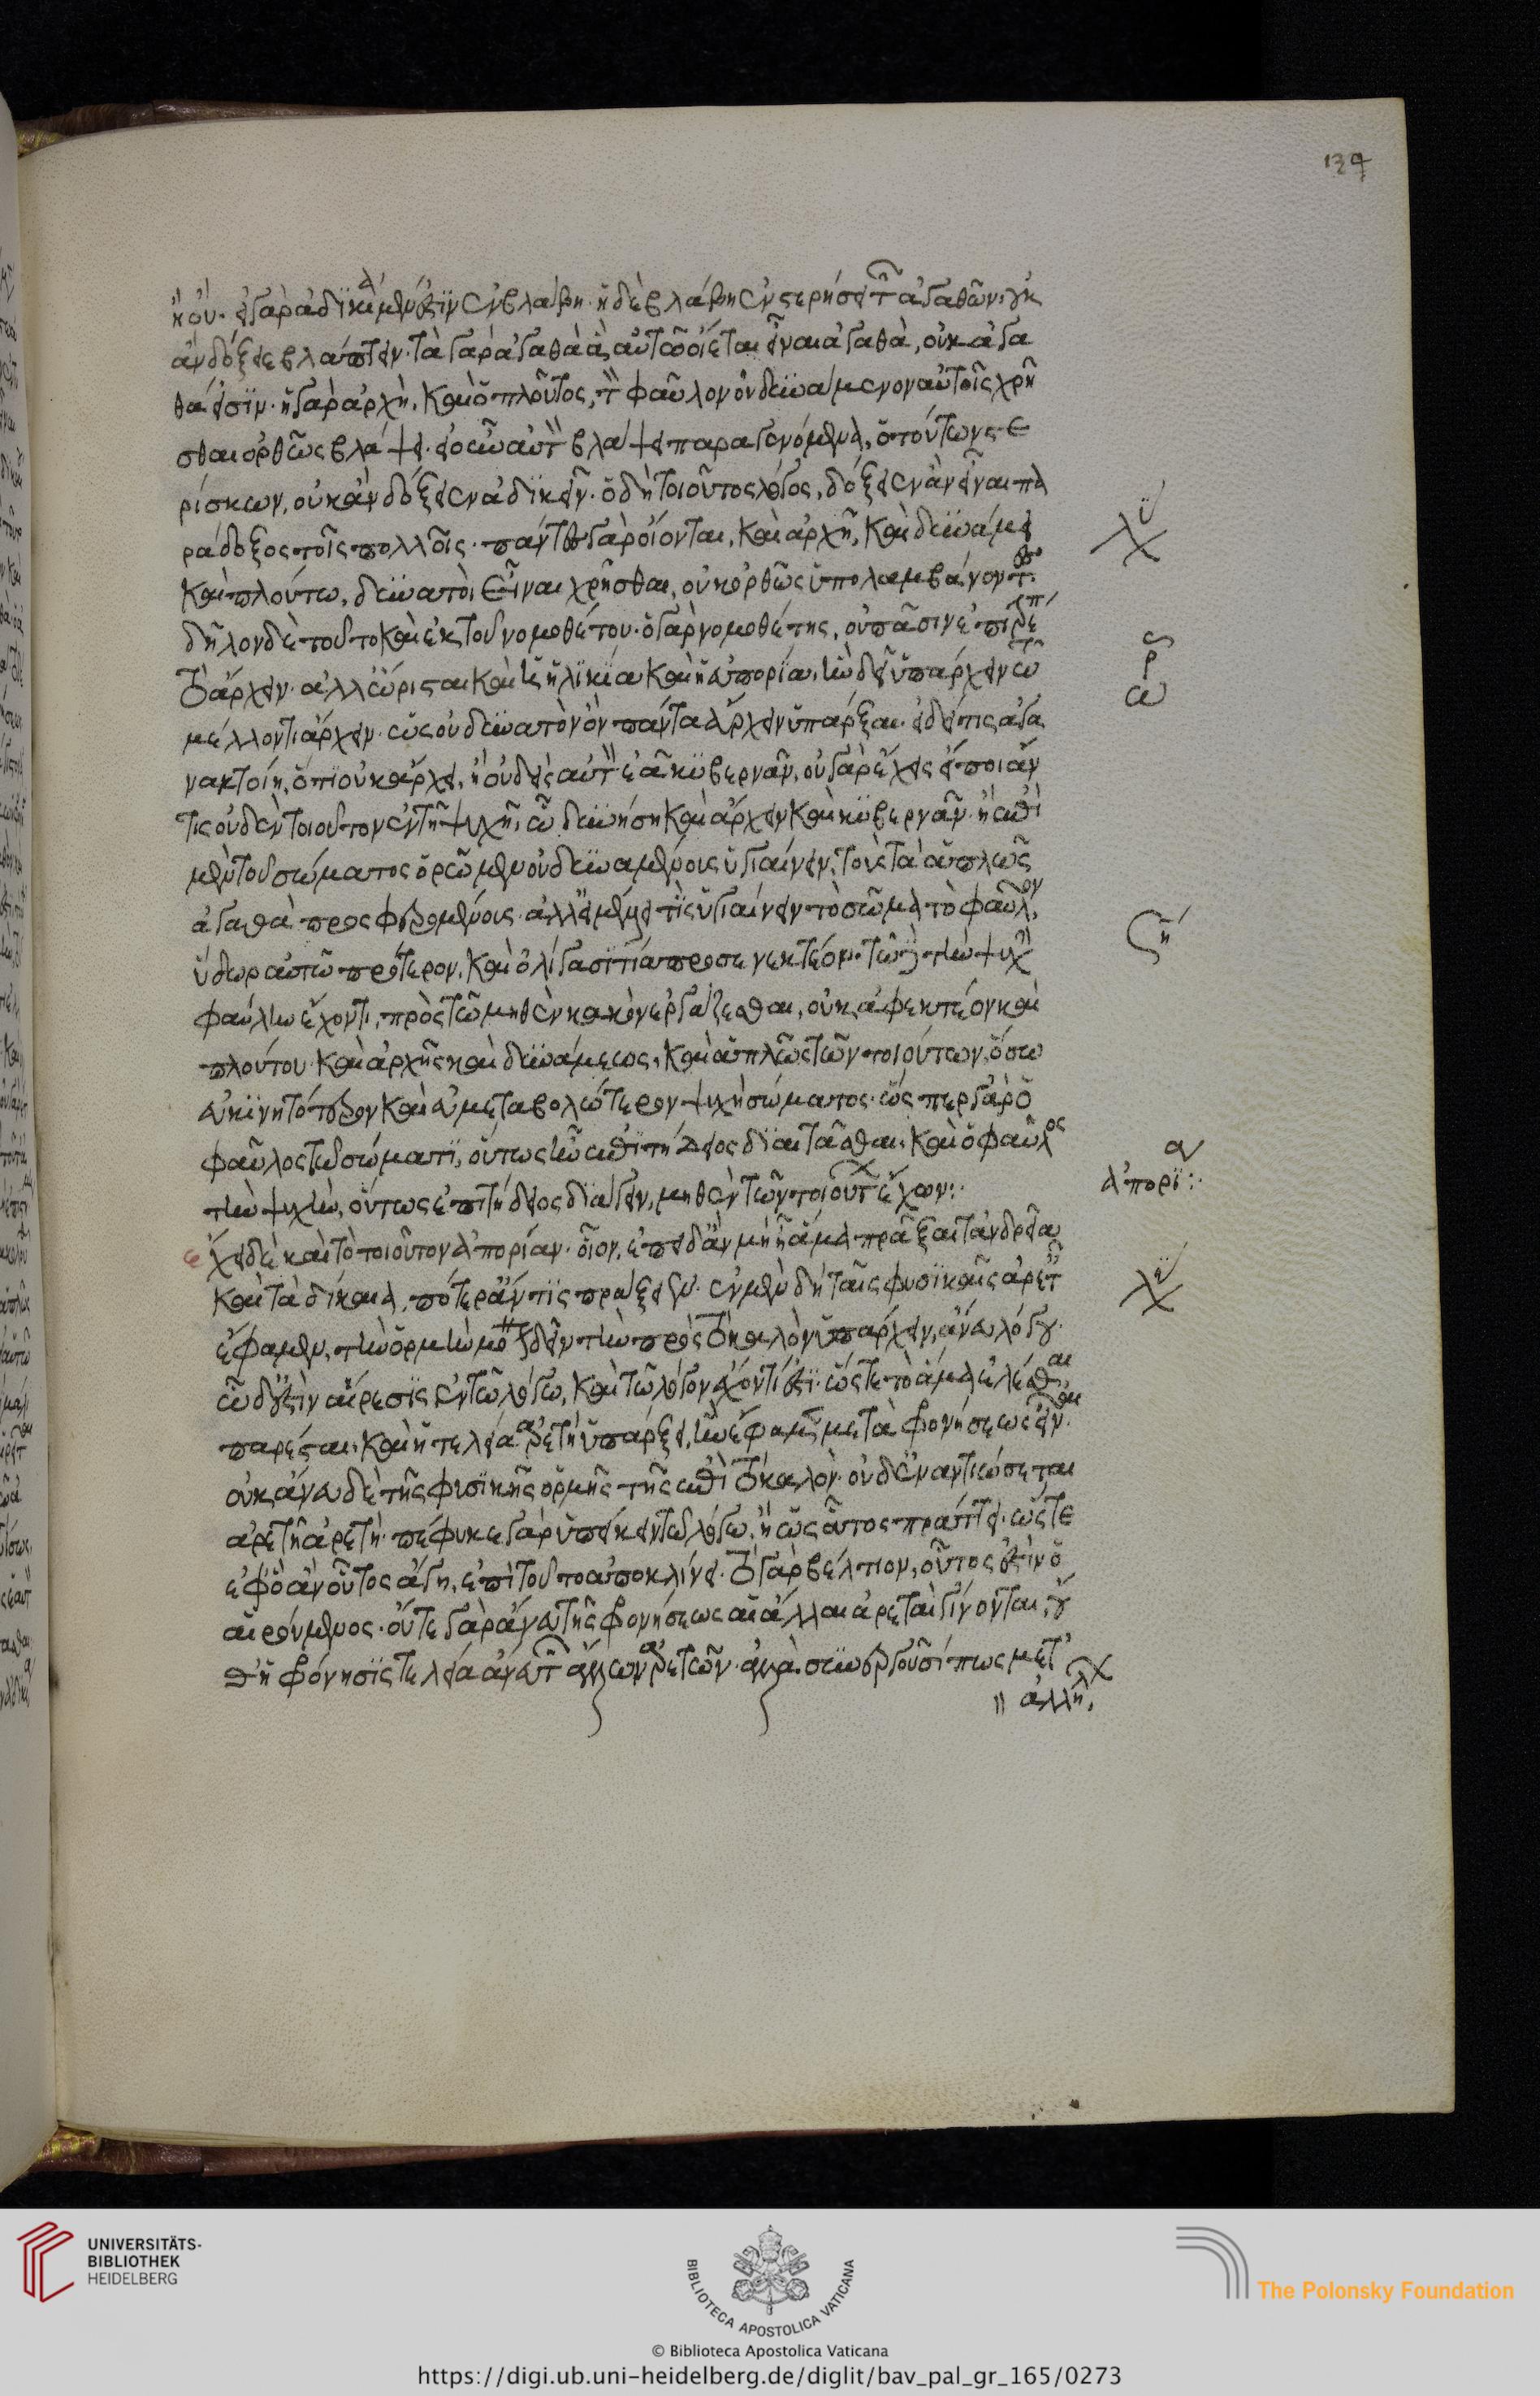 ἢ οὔ. εἰ γὰρ ἀδικία μέν ἐστιν ἐν βλάβη. ἡ δὲ βλάβη ἐν στερήσει τῶν ἀγαθῶν, οὐκ
ἂν δόξειε βλάπτειν. τὰ γὰρ ἀγαθὰ ἃ αὐτῶ οἴεται εἶναι ἀγαθὰ, οὐκ ἀγα
θά εἰσιν. ἡ γὰρ ἀρχὴ, καὶ ὁ πλοῦτος, τὸν φαῦλον οὐ δυνάμενον αὐτοῖς χρῆ
σθαι ὀρθῶς βλάψει. εἰ οὖν αὐτὸν βλάψει παραγενόμενα, ὁ τούτων στε
ρίσκων, οὐκ ἂν δόξειεν ἀδικεῖν. ὁ δὴ τοιοῦτος λόγος, δόξειεν ἂν εἶναι πα
ράδοξος τοῖς πολλοῖς. πάντες γὰρ οἴονται, καὶ ἀρχῆ, καὶ δυνάμει
καὶ πλούτω, δυνατοὶ εἶναι χρῆσθαι, οὐκ ὀρθῶς ὑπολαμβάνοντες.
δῆλον δὲ τοῦτο καὶ ἐκ τοῦ νομοθέτου. ὁ γὰρ νομοθέτης, οὐ πᾶσιν ἐπιτρέπει
τὸ ἄρχειν. ἀλλ' ὥρισται καὶ ἡ ἡλικία καὶ ἡ εὐπορία, ἣν δεῖ ὑπάρχειν τῶ
μέλλοντι ἄρχειν. ὡς οὐ δυνατὸν ὂν πάντα ἄρχειν ὑπάρξαι. εἰ δή τις ἀγα
νακτοίη, ὅτι οὐκ ἄρχει, ἢ οὐδεὶς αὐτὸν ἐᾶ κυβερνᾶν, οὐ γὰρ ἔχεις εἴποι ἄν
τις οὐδὲν τοιοῦτον ἐν τῆ ψυχῆ, ὧ δυνήση καὶ ἄρχειν καὶ κυβερνᾶν. ἢ ἐπὶ
μὲν τοῦ σώματος ὁρῶμεν οὐ δυναμένους ὑγιαίνειν, τοὺς τὰ ἁπλῶς
ἀγαθὰ προσφερομένους. ἀλλ' εἰ μέλλει τις ὑγιαίνειν τὸ σῶμα τὸ φαῦλον,
ὕδωρ αὐτῶ πρότερον, καὶ ὀλίγα σιτία προσενεκτέον. τῶ δὲ τὴν ψυχὴν
φαύλην ἔχοντι, πρὸς τῶ μηθὲν κακὸν ἐργάζεσθαι, οὐκ ἀφεκτέον καὶ
πλούτου καὶ ἀρχῆς καὶ δυνάμεως, καὶ ἁπλῶς τῶν τοιούτων, ὅσω
εὐκινητότερον καὶ εὐμεταβολώτερον ψυχὴ σώματος. ὥσπερ γὰρ ὁ
φαῦλος τὸ σῶμα τι, οὕτως ἦν ἐπιτήδειος διαιτᾶσθαι, καὶ ὁ φαῦλος
τὴν ψυχὴν, οὕτως ἐπιτήδειος διάγειν, μηθὲν τῶν τοιούτων ἔχων:
ἔχει δὲ καὶ τὸ τοιοῦτον ἀπορίαν. οἷον, ἐπειδὰν μὴ ἦ ἅμα πρᾶξαι τἀνδρεῖα
καὶ τὰ δίκαια, πότερ' ἄν τις πράξειεν. ἐν μὲν δὴ ταῖς φυσικαῖς ἀρεταῖς
ἔφαμεν, τὴν ὁρμὴν μόνον δεῖν τὴν πρὸς τὸ καλὸν ὑπάρχειν, ἄνευ λόγου.
ὧ δ' ἐστὶν αἵρεσις ἐν τῶ λόγω, καὶ τῶ λόγον ἔχοντί ἐστι. ὥστε τὸ ἅμα ἑλέσθαι,
παρέσται. καὶ ἡ τελεία ἀρετὴ ὑπάρξει, ἣν ἔφαμεν μετὰ φρονήσεως εἶναι.
οὐκ ἄνευ δὲ τῆς φυσικῆς ὁρμῆς τῆς ἐπὶ τὸ καλὸν. οὐδ' ἐναντιώσεται
ἀρετὴ ἀρετῆ. πέφυκε γὰρ ὑπείκειν τῶ λόγω, ἢ ὡς οὗτος πράττει. ὥστε
ἐφ' ὃ ἂν οὗτος ἄγη, ἐπὶ τοῦτο ἀποκλίνει. τὸ γὰρ βέλτιον, οὗτος ἐστὶν ὁ
αἱρούμενος. οὔτε γὰρ ἄνευ τῆς φρονήσεως αἱ ἄλλαι ἀρεταὶ γίνονται, οὔ
θ' ἡ φρόνησις τελεία ἄνευ τῶν ἄλλων ἀρετῶν. ἀλλὰ συνεργοῦσί πως μετ'
ἀλλήλων
ἀπορία:
UNIVERSITÄTS-
BIBLIOTHEK
HEIDELBERG
BIBLIOTECA APOSTOLICA VATICANA
The Polonsky Foundation
© Biblioteca Apostolica Vaticana
https://digi.ub.uni-heidelberg.de/diglit/bav_pal_gr_165/0273